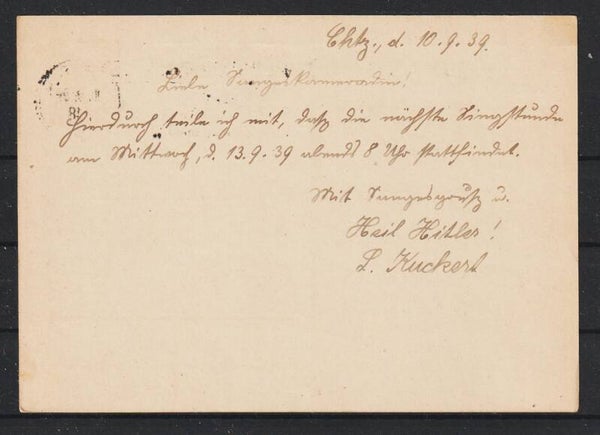 Chtz., d. 10.9.39.
Liebe Sangeskameradin!
Hierdurch teile ich mit, dasz die nächste Singstunde
am Mittwoch, d. 13.9.39 abends 8 Uhr stattfindet.
Mit Sangesgrusz u.
Heil Hitler!
L. Kuckert